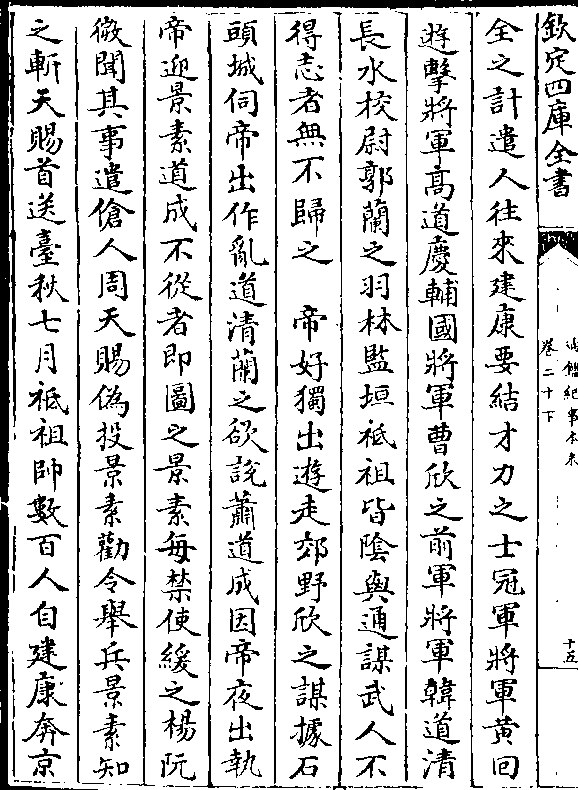 欽定四庫全書
通鑑紀事本末
卷二十下
十五
全之計遣人往來建康要結才力之士冠軍將軍黃回
遊擊將軍高道慶輔國將軍曹欣之前軍將軍韓道清
長水校尉郭蘭之羽林監垣祗祖皆陰與通謀武人不
得志者無不歸之　帝好獨出遊走郊野欣之謀據石
頭城伺帝出作亂道清蘭之欲說蕭道成因帝夜出執
帝迎景素道成不從者即圖之景素每禁使緩之楊阮
微聞其事遣傖人周天賜偽投景素勸令舉兵景素知
之斬天賜首送臺秋七月祗祖帥數百人自建康奔京